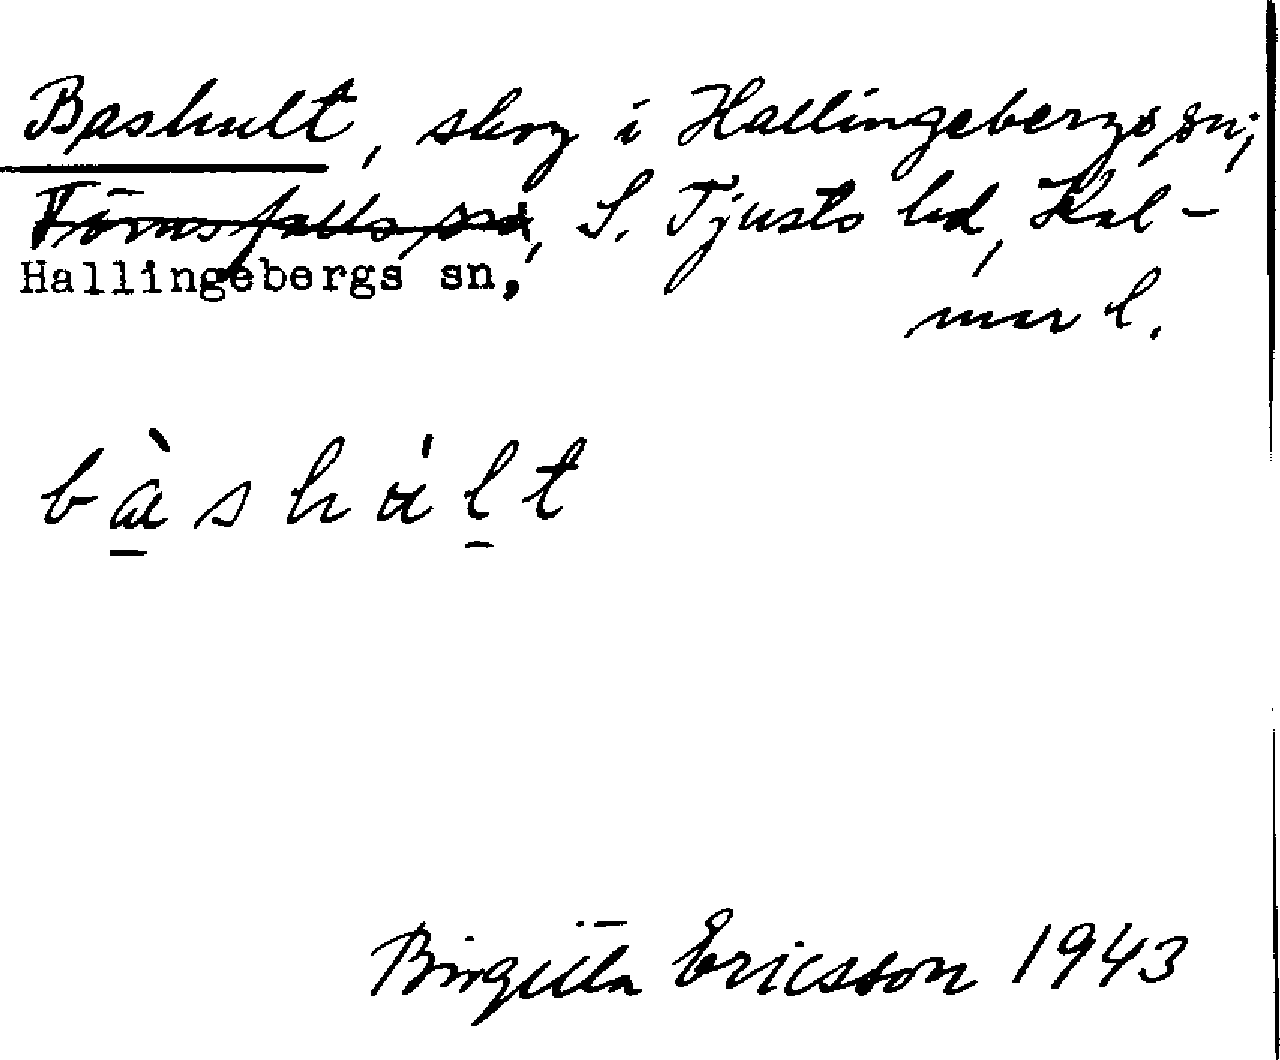 Bashult, skog i Hallingebergs sn;
Törnsfalls sn, S. Tjusts hd, Kal-
Hallingebergs sn,
mar l.
bàshált
Birgitta Ericsson 1943